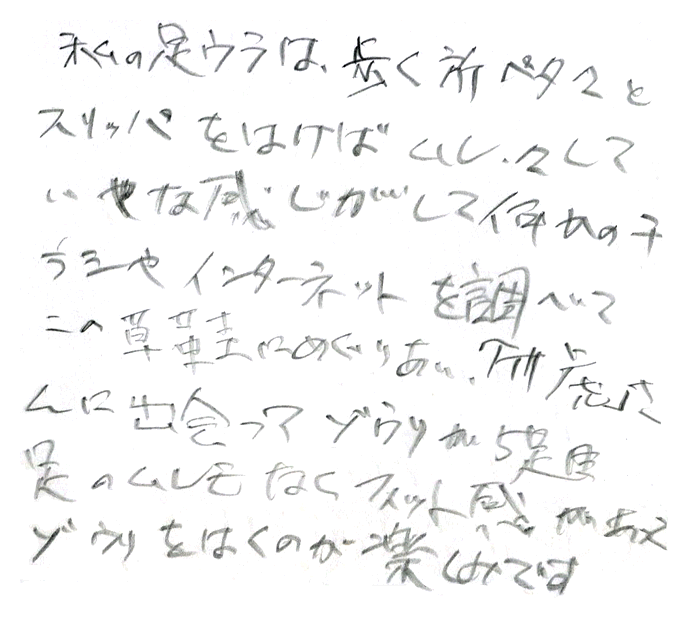 私の足ウラは、歩く所ペタ々と
スリッパをはけばムレ、々して
いやな感じがして何かのチ
ラシや インターネット を調べて
この草鞋にめぐりあい、
んに出会って ゾウリが5足目
足のムレもなくフィット感があって
ゾウリをはくのが楽しみです